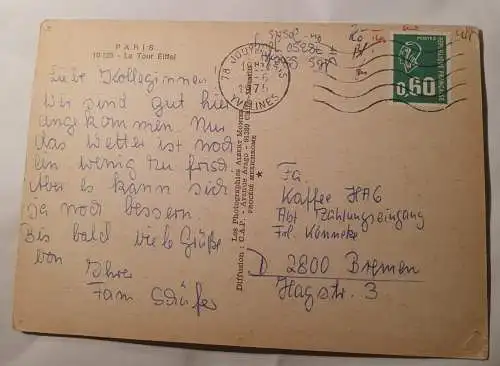 PARIS
10.123 - La Tour Eiffel
Liebe Kolleginnen
Wir sind gut hier
angekommen. Nur
das Wetter ist noch
ein wenig zu frisch
Aber es kann sich
ja noch bessern.
Bis bald viele Grüße
von Ihrer
Fam Schäfer
Les Photographies Albert Monier
Diffusion : C.A.P. - Avenue Arago - 91380
PROCÉDÉ HÉLIOCHROME
78 JOUY
YVELINES
POSTES
RÉPUBLIQUE FRANÇAISE
0,60
Fa
Kaffee HAG
Abt Zahlungseingang
Frl. Könneke
D 2800 Bremen
Hagstr. 3